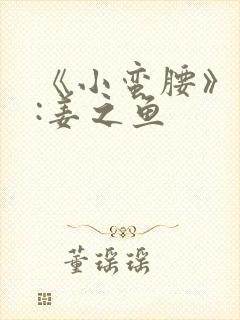 《小蛮腰》
:姜之鱼
董瑶瑶